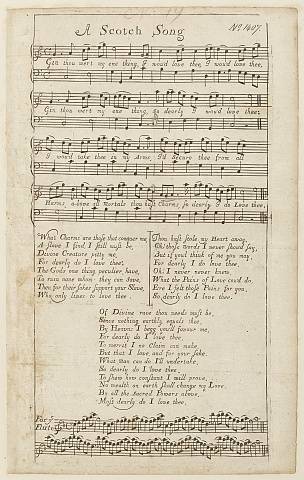 A Scotch Song
No. 1407.
Gin thou wert my ene thing, I wou'd love thee, I wou'd love thee,
Gin thou wert my ene thing, so dearly I wou'd love thee;
I wou'd take thee in my Arms, I'd Secure thee from all
Harms, above all Mortals thou hast Charms, so dearly I do Love thee,
What Charms are those that conquer me,
A slave I find I still must be,
Devine Creature pitty me,
For dearly do I love thee,
The Gods one thing peculiar have,
To ruin none whom they can save,
Then for their sakes support your Slave,
Who only lives to love thee
Thou hast stole my Heart away,
Oh! those words I never shou'd say,
But if you'l think of me you may,
For dearly do I love thee
Oh! I never never knew,
What the Pains of Love cou'd do,
Ere I felt those Pains for you,
So dearly do I love thee.
Of Divine race thou needs must be,
Since nothing earthly equals thee,
By Heavn I begg you'l favour me,
For dearly do I love thee,
To merrit I no Claim can make,
But that I love, and for your sake,
What man can do I'll undertake,
So dearly do I love thee,
To shew how constant I will prove,
No wealth on earth shall change my Love,
By all the Sacred Powers above,
Most dearly do I love thee.
For ye
Flute